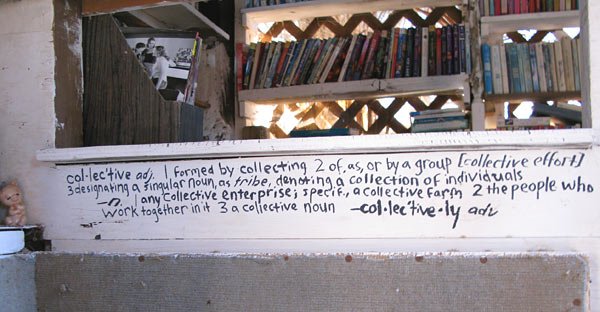 col·lec'tive adj. 1 formed by collecting 2 of, as, or by a group [collective effort]
3 designating a singular noun, as tribe, denoting a collection of individuals
—n. 1 any collective enterprise; specif., a collective farm 2 the people who
work together in it 3 a collective noun —col·lec'tive·ly adv